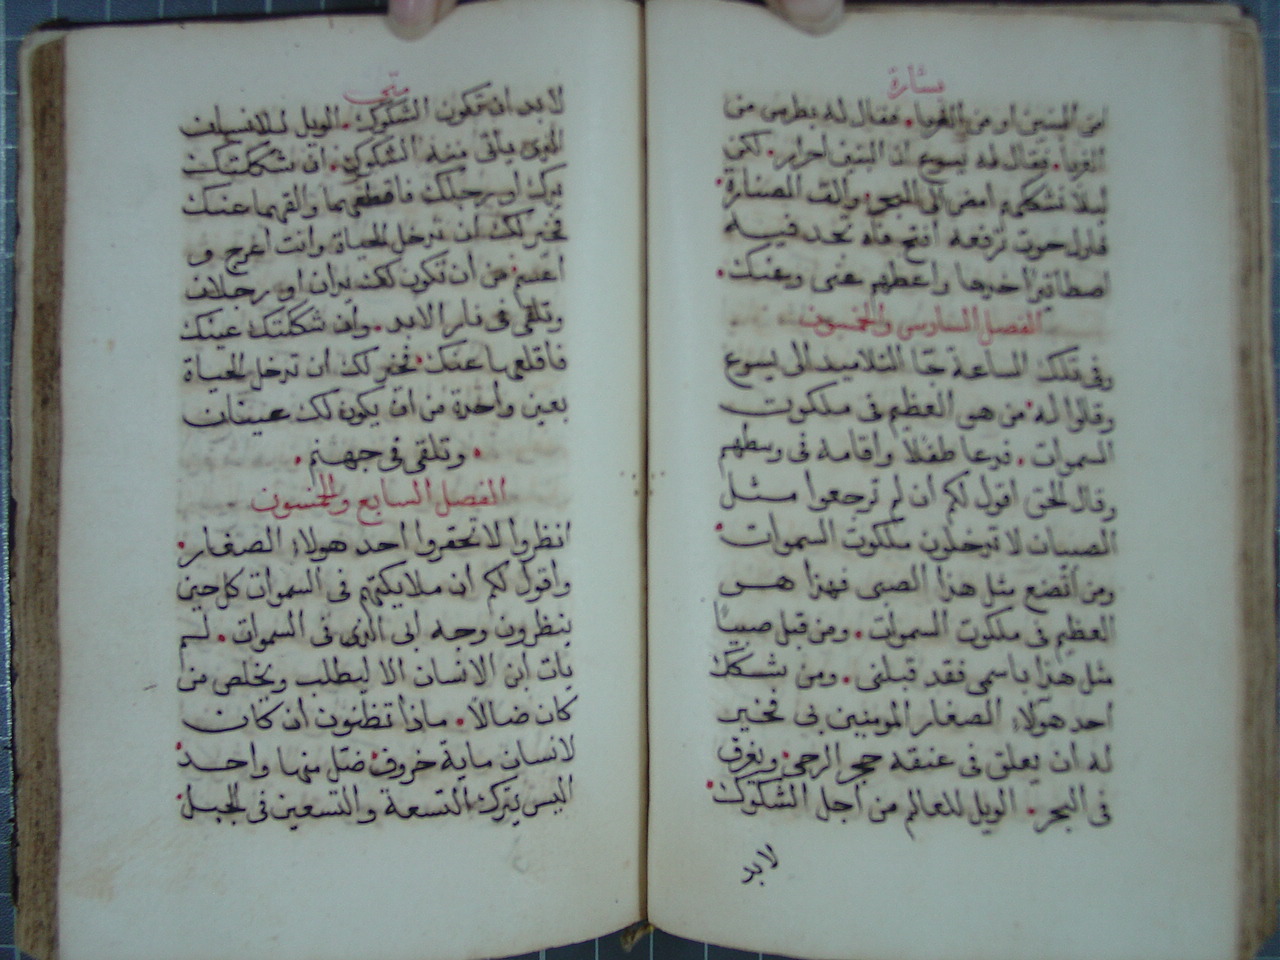 بشارة
امن البنين او من الغربا. فقال له بطرس من
الغربا. فقال له يسوع ان البنين احرار. لكن
ليلا نشككهم امض الى البحر والق الصنارة
فاول حوت ترفعه افتح فاه تجد فيه
اصطاتير اخدها واعطهم عنى وعنك.
الفصل السادس والخمسون
وفى تلك الساعة جا التلاميد الى يسوع
وقالوا له من هو العظيم فى ملكوت
السموات. فدعا طفلا واقامه فى وسطهم
وقال الحق اقول لكم ان لم ترجعوا مثل
الصبيان لا تدخلون ملكوت السموات.
ومن اتضع مثل هذا الصبى فهذا هو
العظيم فى ملكوت السموات. ومن قبل صبيا
مثل هذا باسمى فقد قبلنى. ومن يشكك
احد هولاء الصغار المومنين بى فخير
له ان يعلق فى عنقه حجر الرحى ويغرق
فى البحر. الويل للعالم من اجل الشكوك.
لابد
متى
لابد ان تكون الشكوك. الويل للانسان
الذى ياتى منه الشكوك. ان شككتك
يدك او رجلك فاقطعهما والقهما عنك
فخير لك ان تدخل الحياة وانت اعرج و
اعسم من ان تكون لك يدان او رجلان
وتلقى فى نار الابد. وان شككتك عينك
فاقلعها عنك فخير لك ان تدخل الحياة
بعين واحدة من ان يكون لك عينان
. وتلقى فى جهنم.
الفصل السابع والخمسون
انظروا لا تحقروا احد هولاء الصغار.
واقول لكم ان ملايكتهم فى السموات كل حين
ينظرون وجه ابى الذى فى السموات. لم
يات ابن الانسان الا ليطلب ويخلص من
كان ضالا. ماذا تظنون ان كان
لانسان ماية خروف ضل منها واحد
اليس يترك التسعة والتسعين فى الجبل.